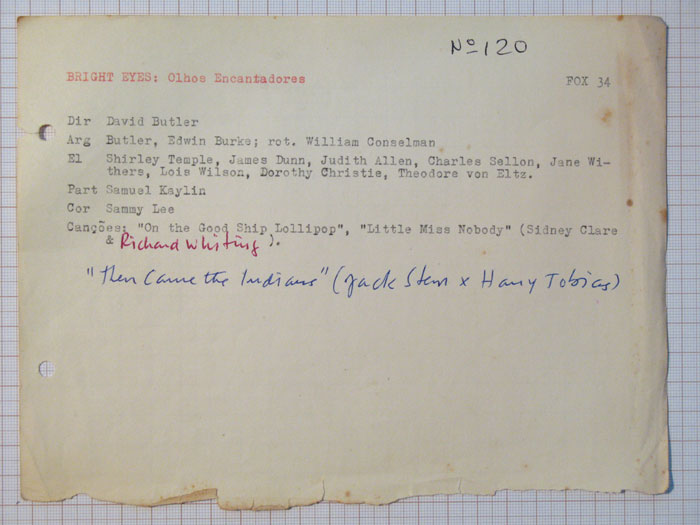 Nº 120
BRIGHT EYES: Olhos Encantadores FOX 34
Dir David Butler
Arg Butler, Edwin Burke; rot. William Conselman
El Shirley Temple, James Dunn, Judith Allen, Charles Sellon, Jane Wi-
thers, Lois Wilson, Dorothy Christie, Theodore von Eltz.
Part Samuel Kaylin
Cor Sammy Lee
Canções: "On the Good Ship Lollipop", "Little Miss Nobody" (Sidney Clare
& Richard Whiting ).
"Then Came the Indians" (Jack Stern x Harry Tobias)